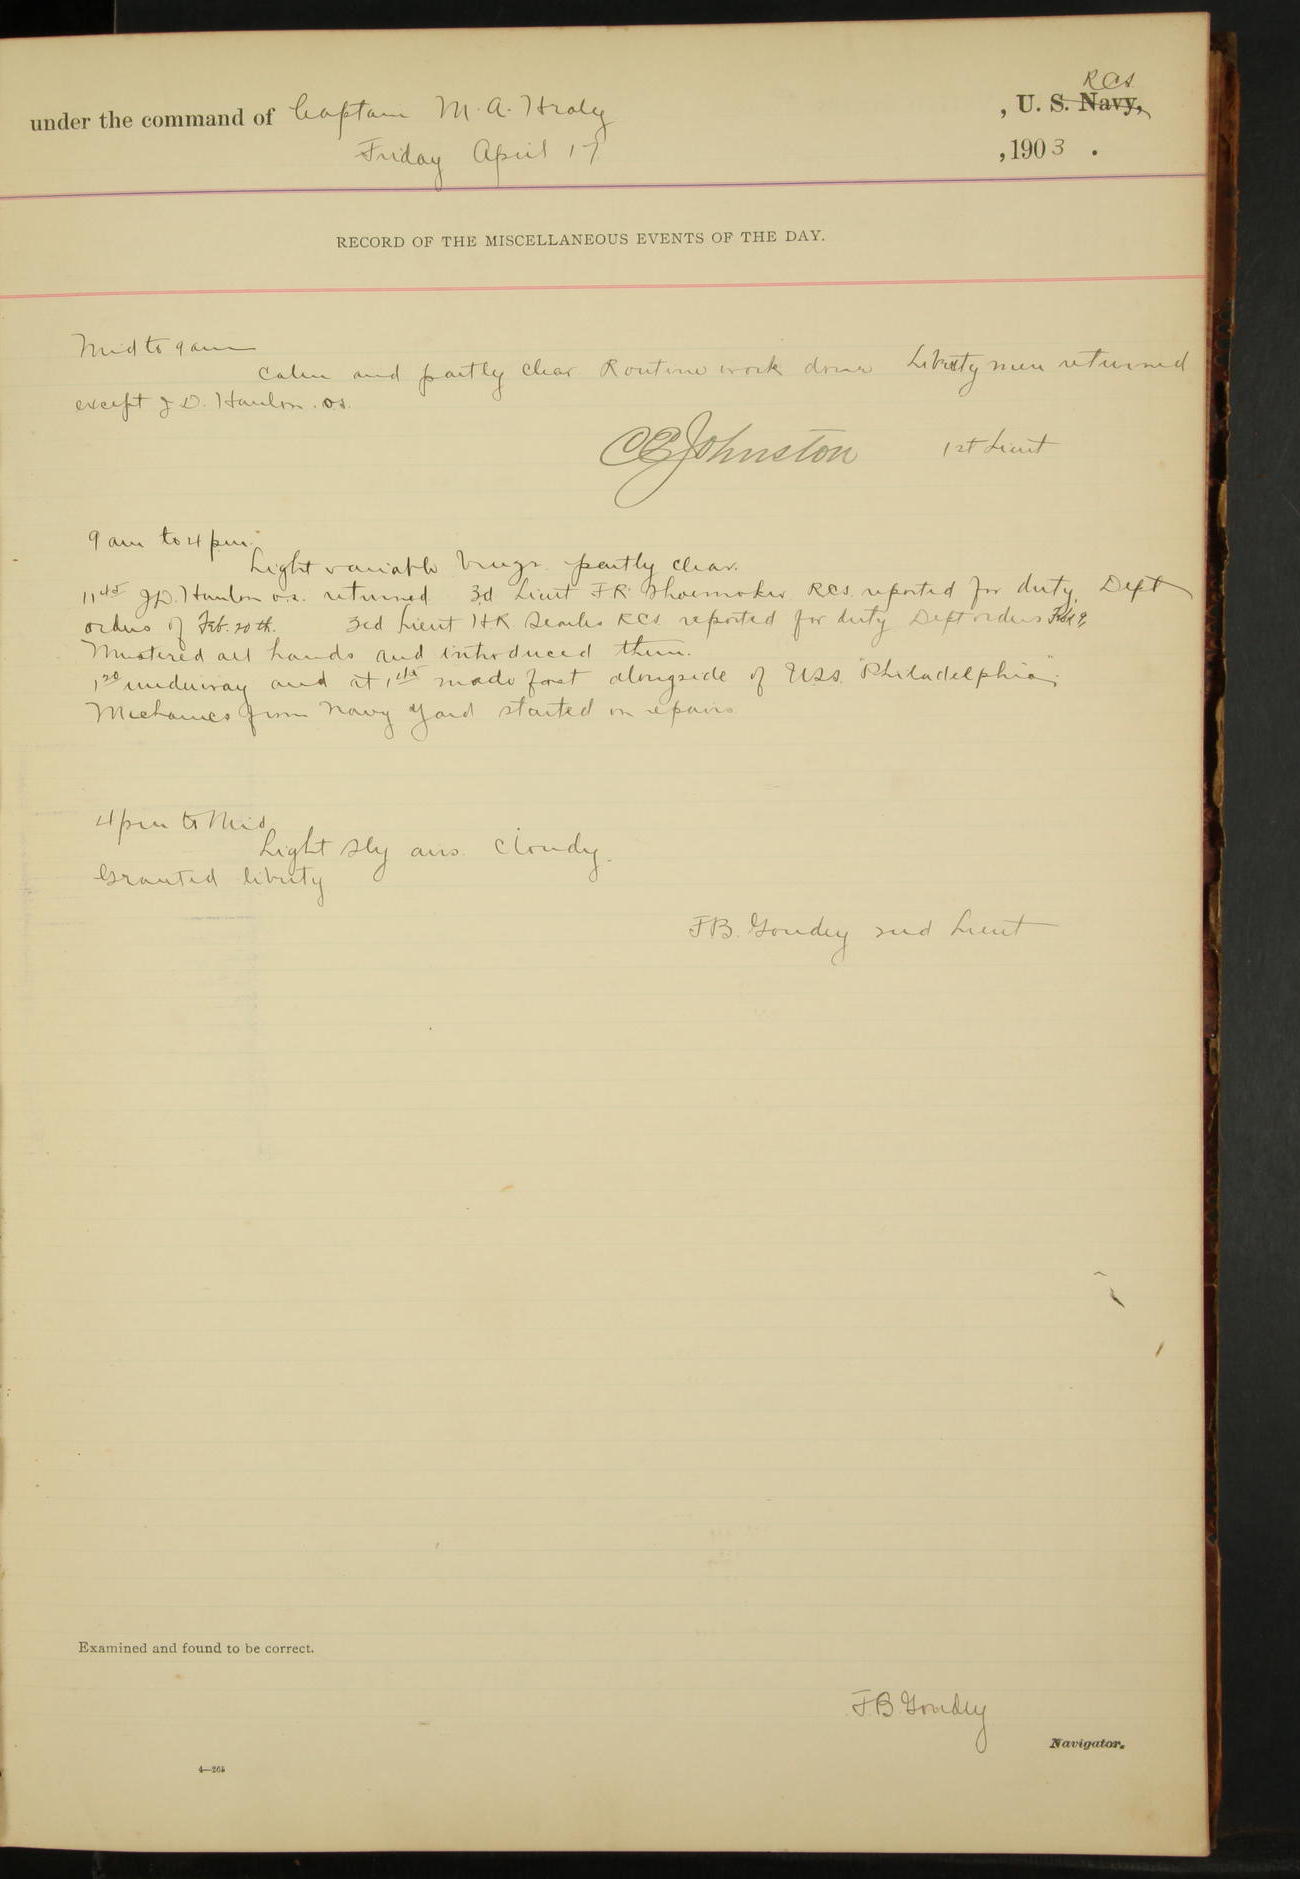 R C S
under the command of Captain M. A. Healy , U. S. Navy,
Friday April 17 , 1903 .
RECORD OF THE MISCELLANEOUS EVENTS OF THE DAY.
Mid to 9 am
Calm and partly clear Routine work done Liberty men returned
except J D. Hanlon. o.s.
C E Johnston 1st Lieut
9 am to 4 pm.
Light variable partly clear.
11 45 J.D. Hanlon o.s. returned 3d Lieut F.R. Shoemaker RCS. reported for duty, Dept
orders of Feb. 20th. 3rd Lieut H R Searles RCS reported for duty Dept orders
Mustered all hands and introduced them.
underway and at made fast alongside of U.S.S. "Philadelphia",
Mechanics from Navy Yard started on repairs.
4 pm to Mid
Light Sly airs. Cloudy.
Granted liberty
F.B. Goudey 2nd Lieut
Examined and found to be correct.
F.B Goudey
Navigator.
4—265